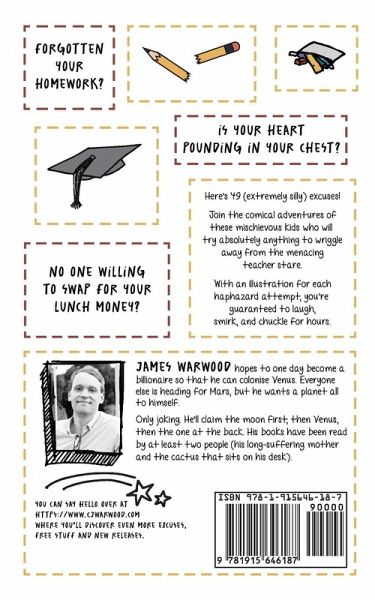 FORGOTTEN
YOUR
HOMEWORK?
IS YOUR HEART
POUNDING IN YOUR CHEST?
Here's 49 (extremely silly) excuses!
Join the comical adventures of
these mischievous kids who will
try absolutely anything to wriggle
away from the menacing
teacher stare.
With an illustration for each
haphazard attempt, you're
guaranteed to laugh,
smirk, and chuckle for hours.
NO ONE WILLING
TO SWAP FOR YOUR
LUNCH MONEY?
JAMES WARWOOD hopes to one day become a
billionaire so that he can colonise Venus. Everyone
else is heading for Mars, but he wants a planet all
to himself.
Only joking. He'll claim the moon first, then Venus,
then the one at the back. His books have been read
by at least two people (his long-suffering mother
and the cactus that sits on his desk).
YOU CAN SAY HELLO OVER AT
HTTPS://WWW.CJWARWOOD.COM
WHERE YOU'LL DISCOVER EVEN MORE EXCUSES,
FREE STUFF AND NEW RELEASES.
ISBN 978-1-915646-18-7
90000
9 781915 646187